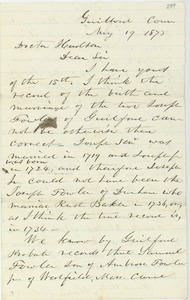 Guilford Conn
Aug 19 1873
Doctor Hudson
Dear Sir
I have yours
of the 15th. I think the
record of the birth and
marriage of the two Joseph
Fowlers of Guilford can
not be otherwise than
correct. Joseph Sen was
married in 1719 and Joseph Jr
was born
in 1720, and therefore Joseph
Jr could not have been the
Joseph Fowler of Durham who
married Kest Baker in 1736, or
as I think the true record is,
in 1734
We know by Guilford
Probate records that
Fowler son of Ambrose Fowler
of Westfield, Mass. Came